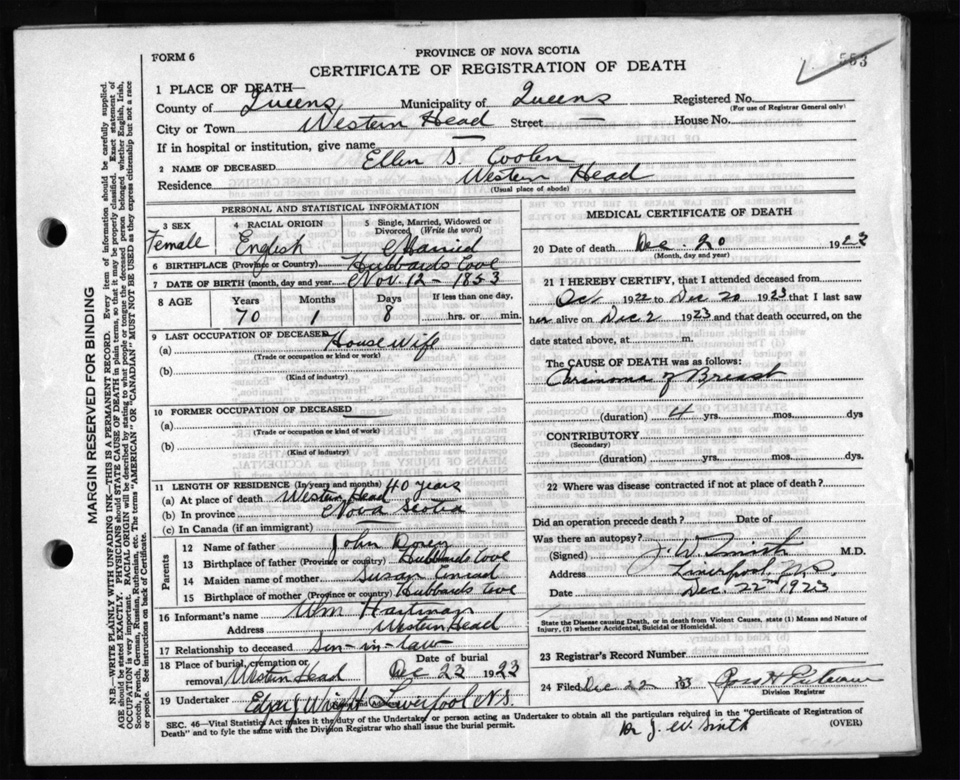 FORM 6
PROVINCE OF NOVA SCOTIA
553
CERTIFICATE OF REGISTRATION OF DEATH
1 PLACE OF DEATH—
County of Queens Municipality of Queens Registered No.
(For use of Registrar General only)
City or Town Western Head Street — House No.
If in hospital or institution, give name —
2 NAME OF DECEASED Ellen S. Coolen
Residence Western Head
(Usual place of abode)
PERSONAL AND STATISTICAL INFORMATION
3 SEX 4 RACIAL ORIGIN 5 Single, Married, Widowed or
Divorced (Write the word)
Female English Married
6 BIRTHPLACE (Province or Country) Hubbards Cove
7 DATE OF BIRTH (month, day and year) Nov. 12 - 1853
8 AGE Years Months Days If less than one day,
70 1 8 hrs. or min.
9 LAST OCCUPATION OF DECEASED
(a) House Wife
(Trade or occupation or kind or work)
(b)
(Kind of industry)
10 FORMER OCCUPATION OF DECEASED —
(a)
(Trade or occupation or kind of work)
(b)
(Kind of industry)
11 LENGTH OF RESIDENCE (In years and months) 40 years
(a) At place of death Western Head
(b) In province Nova Scotia
(c) In Canada (if an immigrant) —
Parents
12 Name of father John Dorey
13 Birthplace of father (Province or country) Hubbards Cove
14 Maiden name of mother Susan Conrad
15 Birthplace of mother (Province or country) Hubbards Cove
16 Informant's name Wm Hartman
Address Western Head
17 Relationship to deceased Son-in-law
18 Place of burial, cremation or Date of burial
removal Western Head Dec 23 1923
19 Undertaker Edgar Wright Liverpool N.S.
MEDICAL CERTIFICATE OF DEATH
20 Date of death Dec. 20 1923
(Month, day and year)
21 I HEREBY CERTIFY, that I attended deceased from
Oct 1922 to Dec 20 1923 that I last saw
her alive on Dec 2 1923 and that death occurred, on the
date stated above, at m.
The CAUSE OF DEATH was as follows:
Carcinoma of Breast
(duration) 4 yrs. mos. dys
CONTRIBUTORY
(Secondary)
(duration) yrs. mos. dys.
22 Where was disease contracted if not at place of death?
Did an operation precede death? Date of
Was there an autopsy?
(Signed) J. W. Smith M.D.
Address Liverpool N.S.
Date Dec. 22nd 1923
State the Disease causing Death, or in death from Violent Causes, state (1) Means and Nature
of Injury, (2) whether Accidental, Suicidal or Homicidal.
23 Registrar's Record Number
24 Filed Dec 22 1923
Division Registrar
SEC. 46—Vital Statistics Act makes it the duty of the Undertaker or person acting as Undertaker to obtain all the particulars required in the "Certificate of Registration of
Death" and to fyle the same with the Division Registrar who shall issue the burial permit.
(OVER)
Dr J. W. Smith
MARGIN RESERVED FOR BINDING
N.B.—WRITE PLAINLY WITH UNFADING INK—THIS IS A PERMANENT RECORD. Every item of information should be carefully supplied.
AGE should be stated EXACTLY. PHYSICIANS should STATE CAUSE OF DEATH in plain terms, so that it may be properly classified. Exact statement of
OCCUPATION is very important. RACIAL ORIGIN will be described by stating to what people or tongue the deceased person belonged whether English, Irish,
Scotch, French, German, Russian, Ruthenian, etc. The terms "AMERICAN" OR "CANADIAN" MUST NOT BE USED as they express citizenship but not a race
of people. See instructions on back of Certificate.